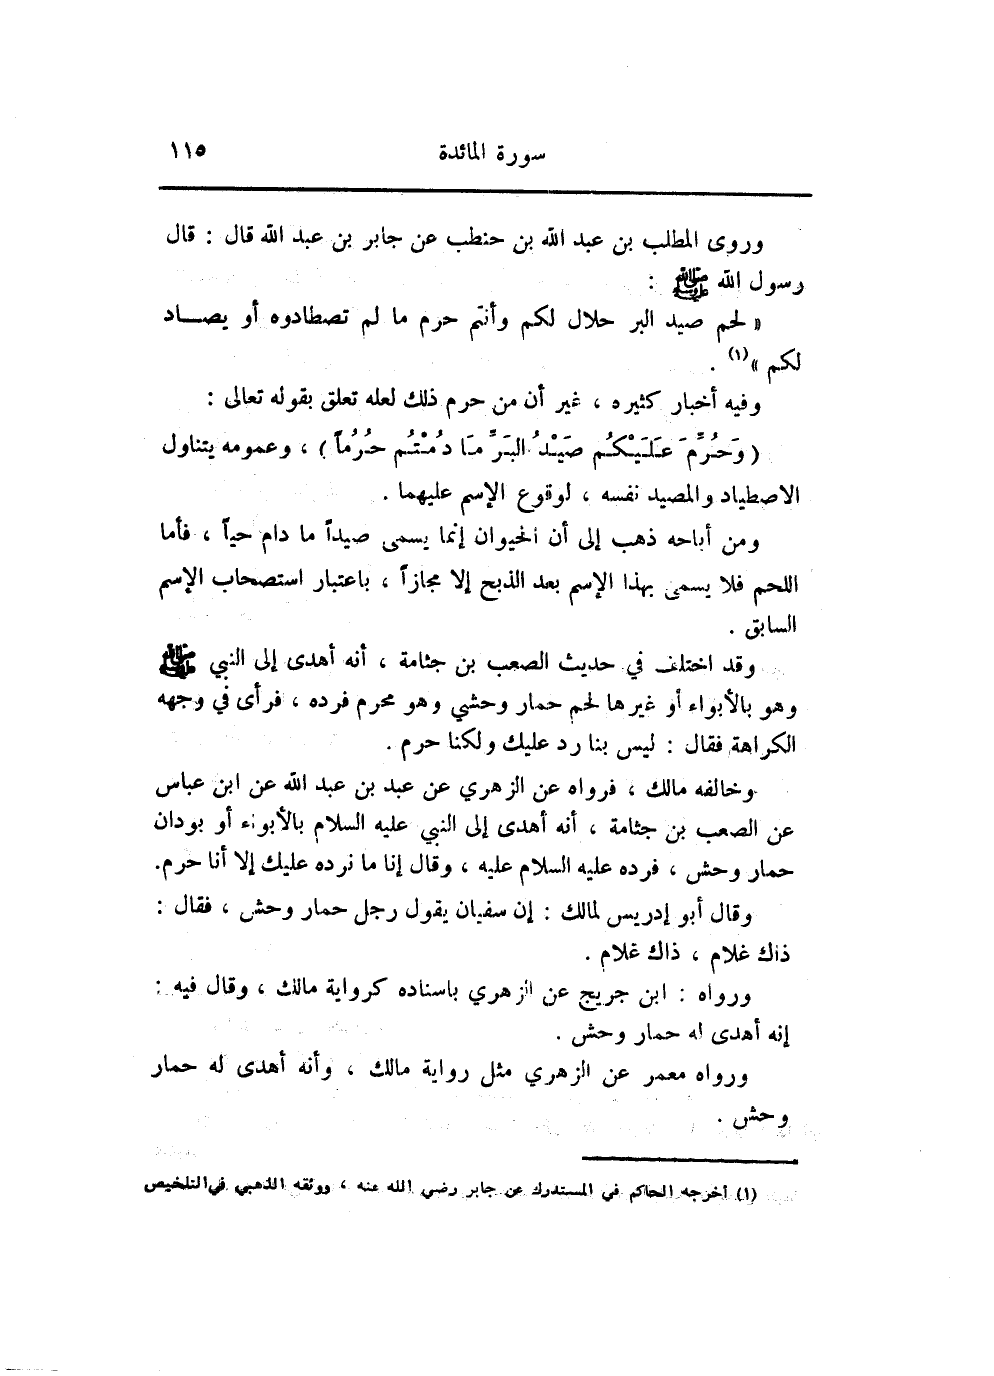 سورة المائدة ١١٥
وروى المطلب بن عبد الله بن حنطب عن جابر بن عبد الله قال : قال
رسول الله ﷺ :
« لحم صيد البر حلال لكم وأنتم حرم ما لم تصطادوه أو يصــاد
لكم »(١) .
وفيه أخبار كثيره ، غير أن من حرم ذلك لعله تعلق بقوله تعالى :
( وَحُرِّمَ عَلَيْكُم صَيْدُ البَرِّ مَا دُمْتُم حُرُماً ) ، وعمومه يتناول
الاصطياد والمصيد نفسه ، لوقوع الإسم عليهما .
ومن أباحه ذهب إلى أن الحيوان إنما يسمى صيداً ما دام حياً ، فأما
اللحم فلا يسمى بهذا الإسم بعد الذبح إلا مجازاً ، باعتبار استصحاب الإسم
السابق .
وقد اختلف في حديث الصعب بن جثامة ، أنه أهدى إلى النبي ﷺ
وهو بالأبواء أو غيرها لحم حمار وحشي وهو محرم فرده ، فرأى في وجهه
الكراهة فقال : ليس بنا رد عليك ولكنا حرم .
وخالفه مالك ، فرواه عن الزهري عن عبد بن عبد الله عن ابن عباس
عن الصعب بن جثامة ، أنه أهدى إلى النبي عليه السلام بالأبواء أو بودان
حمار وحش ، فرده عليه السلام عليه ، وقال إنا ما نرده عليك إلا أنا حرم.
وقال أبو إدريس لمالك : إن سفيان يقول رجل حمار وحش ، فقال :
ذاك غلام ، ذاك غلام .
ورواه : ابن جريج عن الزهري باسناده كرواية مالك ، وقال فيه :
إنه أهدى له حمار وحش .
ورواه معمر عن الزهري مثل رواية مالك ، وأنه أهدى له حمار
وحش .
(١) أخرجه الحاكم في المستدرك عن جابر رضي الله عنه ، ووثقه الذهبي في التلخيص